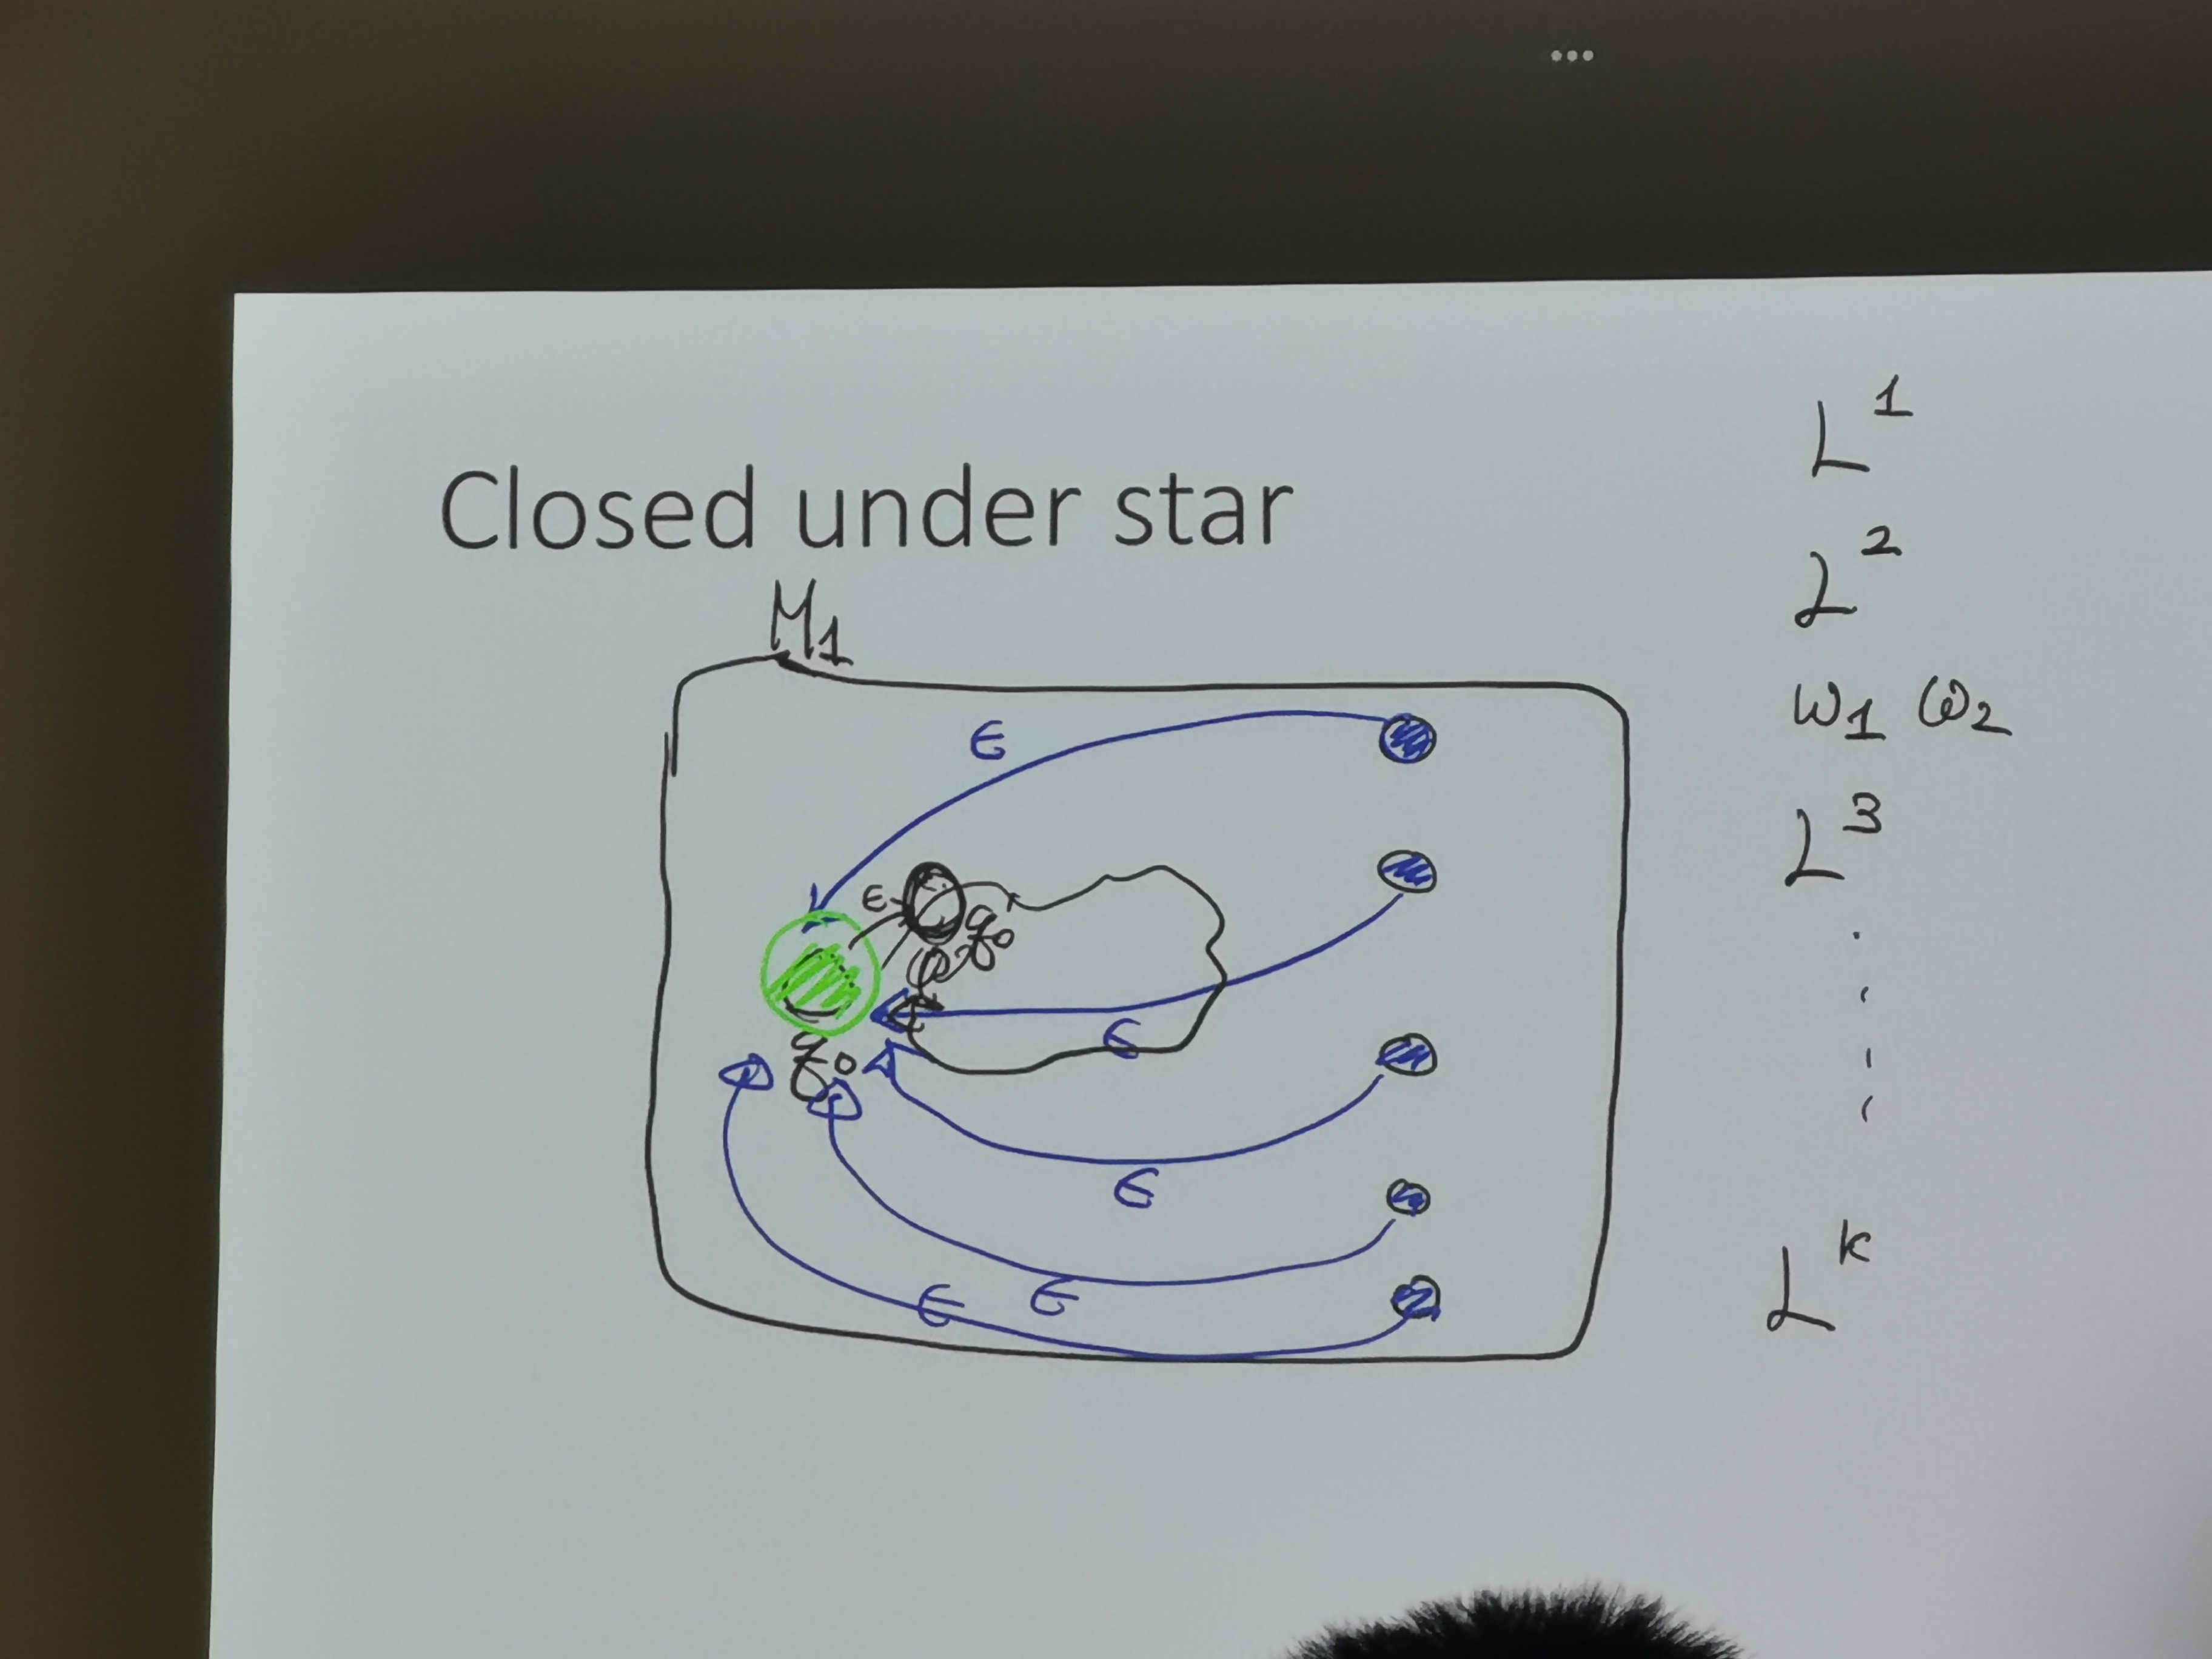 Closed under star
M1
ϵ
ϵ
q0
q0
ϵ
ϵ
ϵ
ϵ
L^1
L^2
w1 w2
L^3
L^k